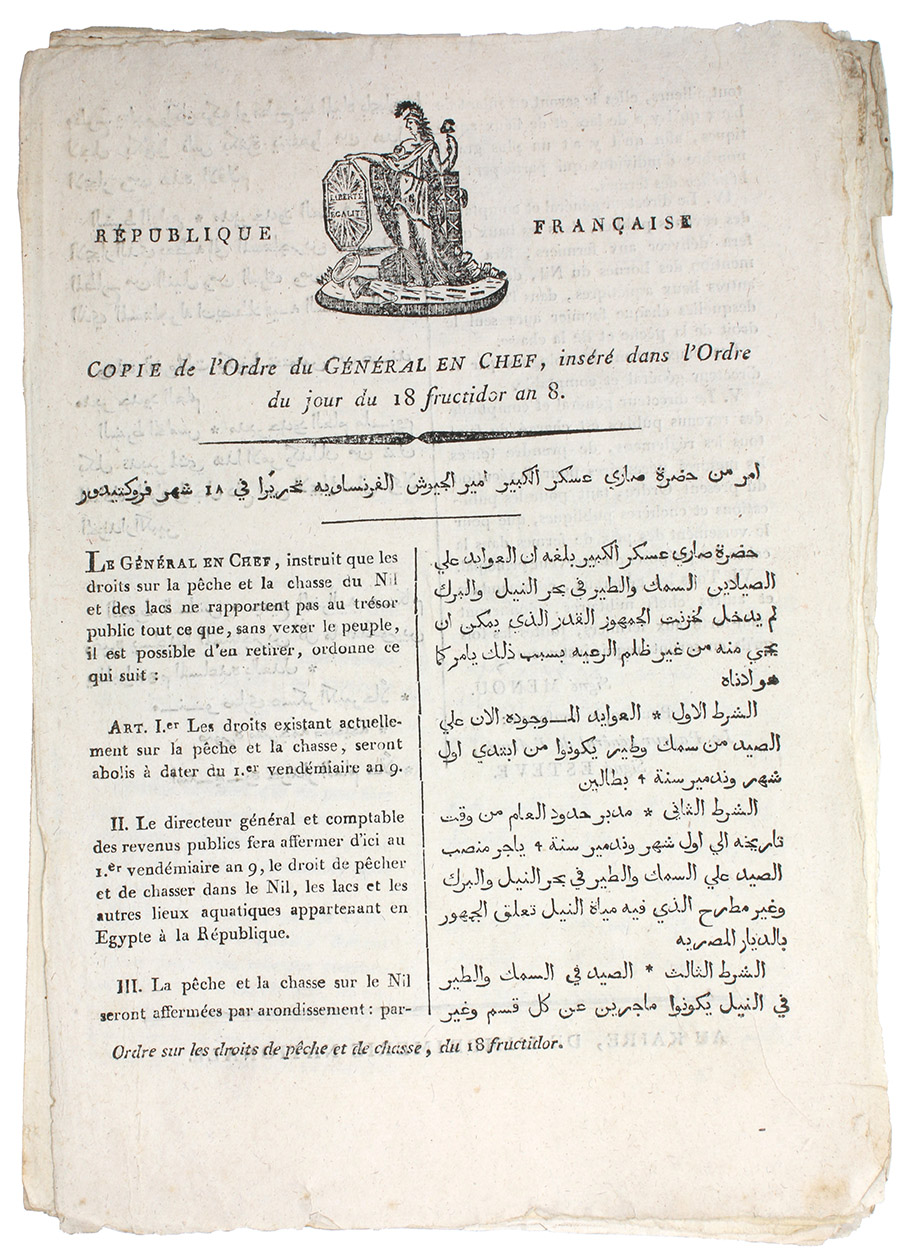 LIBERTÉ
ÉGALITÉ
RÉPUBLIQUE FRANÇAISE
COPIE de l'Ordre du GÉNÉRAL EN CHEF, inséré dans l'Ordre
du jour du 18 fructidor an 8.
امر من حضرة صاري عسكر الكبير امير الجيوش الفرنساويه تحريرًا في ١٨ شهر فروكتيدور
LE GÉNÉRAL EN CHEF, instruit que les
droits sur la pêche et la chasse du Nil
et des lacs ne rapportent pas au trésor
public tout ce que, sans vexer le peuple,
il est possible d'en retirer, ordonne ce
qui suit :
ART. I.er Les droits existant actuelle-
ment sur la pêche et la chasse, seront
abolis à dater du 1.er vendémiaire an 9.
II. Le directeur général et comptable
des revenus publics fera affermer d'ici au
1.er vendémiaire an 9, le droit de pêcher
et de chasser dans le Nil, les lacs et les
autres lieux aquatiques appartenant en
Egypte à la République.
III. La pêche et la chasse sur le Nil
seront affermées par arondissement : par-
حضرة صاري عسكر الكبير بلغه ان العوايد علي
الصيادين السمك والطير في بحر النيل والبرك
لم يدخل لخزنت الجمهور القدر الذي يمكن ان
يجي منه من غير ظلم الرعيه بسبب ذلك يامر كما
هو ادناه
الشرط الاول * العوايد الموجوده الان علي
الصيد من سمك وطير يكونوا من ابتدي اول
شهر وندمير سنة ٩ بطالين
الشرط الثاني * مدبر حدود العام من وقت
تاريخه الي اول شهر وندمير سنة ٩ ياجر منصب
الصيد علي السمك والطير في بحر النيل والبرك
وغير مطرح الذي فيه مياة النيل تعلق الجمهور
بالديار المصريه
الشرط الثالث * الصيد في السمك والطير
في النيل يكونوا ماجرين عن كل قسم وغير
Ordre sur les droits de pêche et de chasse, du 18 fructidor.